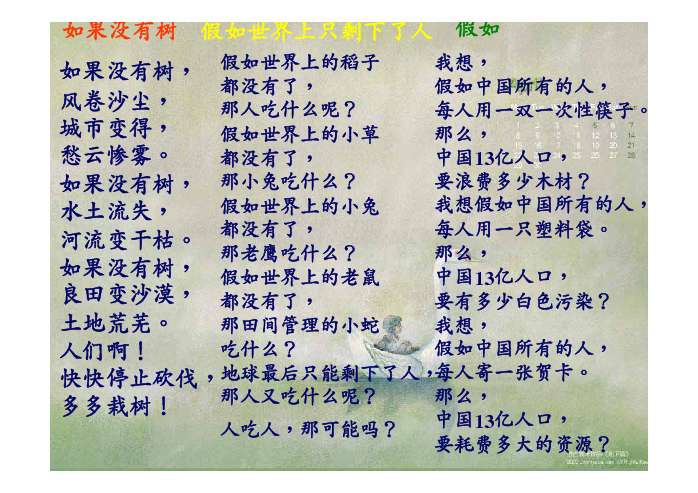 如果没有树
如果没有树，
风卷沙尘，
城市变得，
愁云惨雾。
如果没有树，
水土流失，
河流变干枯。
如果没有树，
良田变沙漠，
土地荒芜。
人们啊！
快快停止砍伐，
多多栽树！
假如世界上只剩下了人
假如世界上的稻子
都没有了，
那人吃什么呢？
假如世界上的小草
都没有了，
那小兔吃什么？
假如世界上的小兔
都没有了，
那老鹰吃什么？
假如世界上的老鼠
都没有了，
那田间管理的小蛇
吃什么？
地球最后只能剩下了人，
那人又吃什么呢？
人吃人，那可能吗？
假如
我想，
假如中国所有的人，
每人用一双一次性筷子。
那么，
中国13亿人口，
要浪费多少木材？
我想假如中国所有的人，
每人用一只塑料袋。
那么，
中国13亿人口，
要有多少白色污染？
我想，
假如中国所有的人，
每人寄一张贺卡。
那么，
中国13亿人口，
要耗费多大的资源？